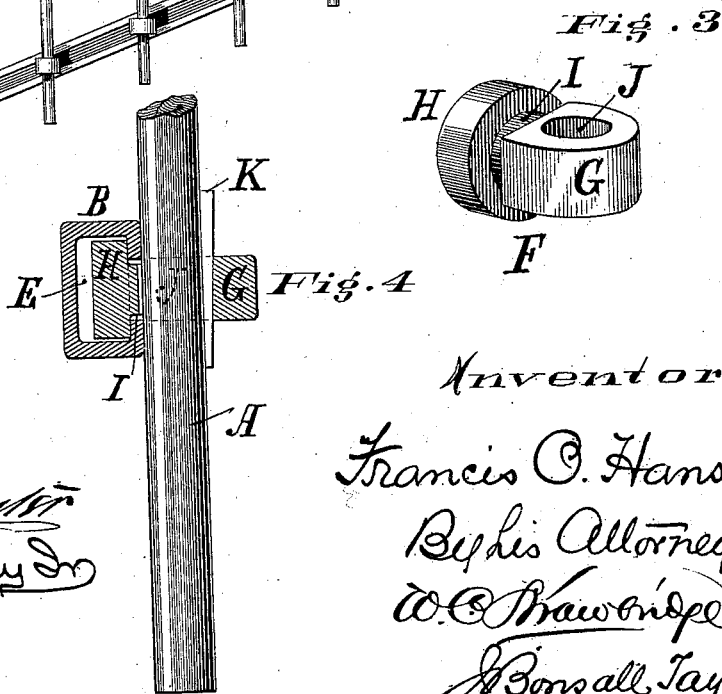 Fig. 3
H
I
J
G
F
K
B
H
E
J
G
Fig. 4
I
A
Inventor
Francis O. Hans
By his Attorney
W. C. Strawbridge
J Bonsall Tay